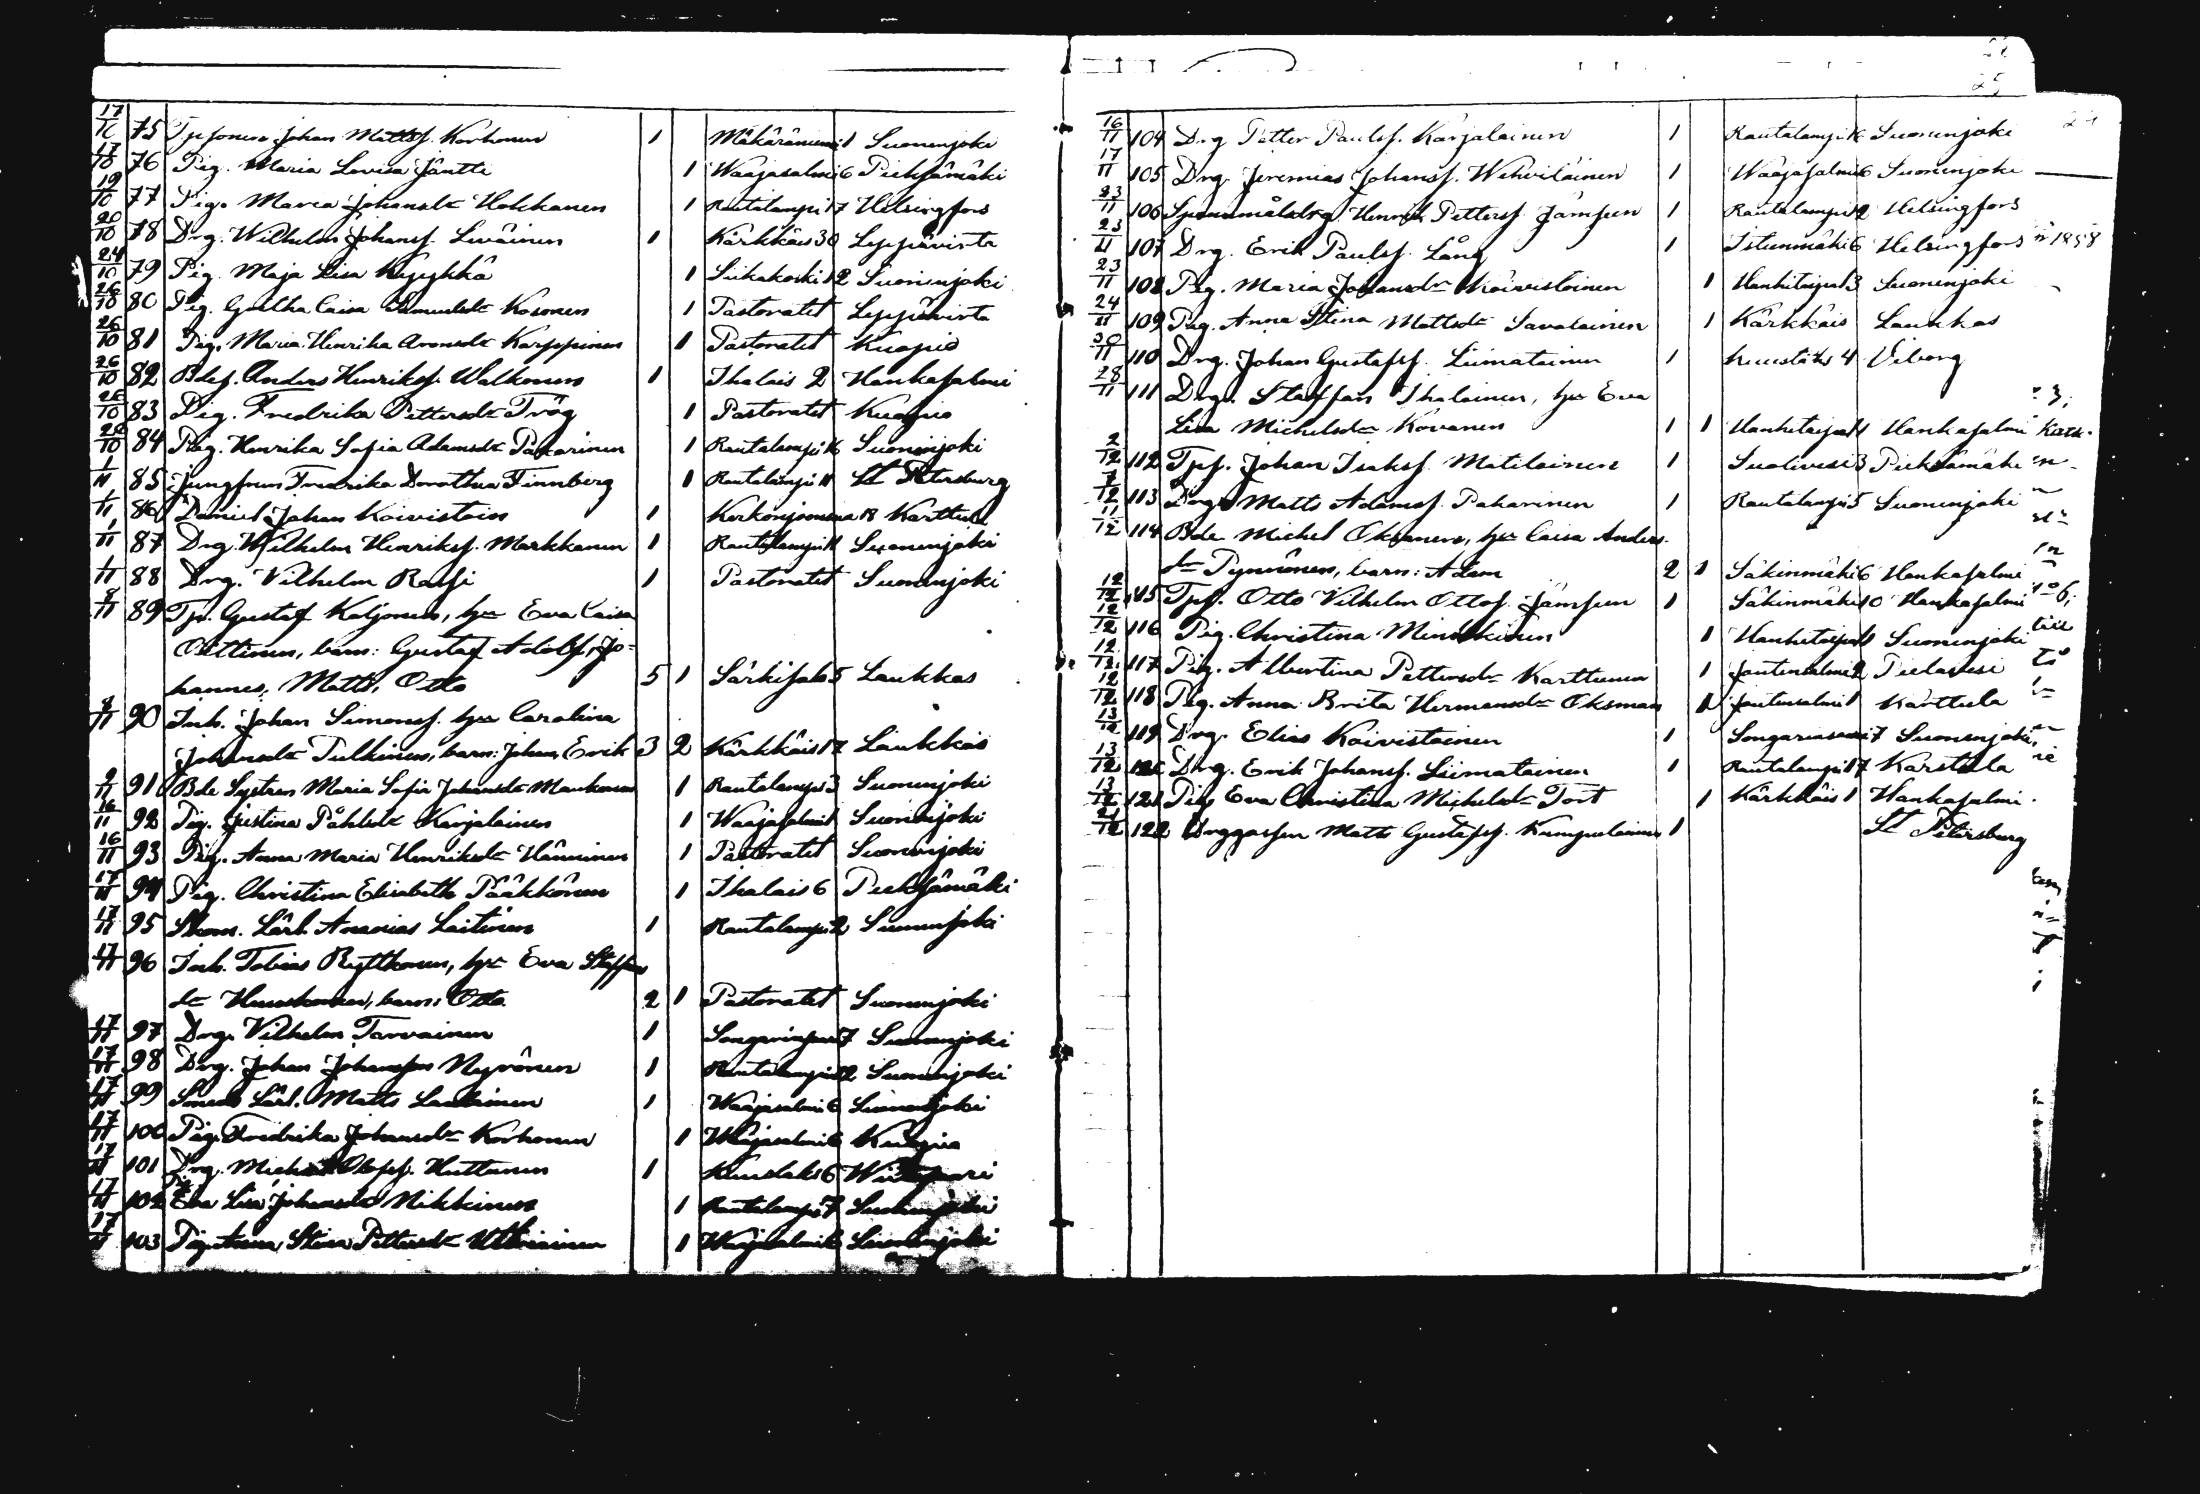 17/10 75 Tpsonen Johan Mattsf. Korhonen 1 Mäkäräniemi 1 Suonenjoki
17/10 76 Pig. Maria Lovisa Jäntti 1 Waajasalmi 6 Pieksämäki
19/10 77 Pig. Maria Johansdr Hokkanen 1 Rautalampi 17 Helsingfors
20/10 78 Drg. Wilhelm Johansf. Leväinen 1 Kärkkäis 30 Leppävirta
24/10 79 Pig. Maja Lisa Ryyhkä 1 Siikakoski 12 Suonenjoki
26/10 80 Pig. Gustka Caisa Samuelsdr Kosonen 1 Pastoratet Leppävirta
26/10 81 Pig. Maria Henrika Aronsdr Karppinen 1 Pastoratet Kuopio
26/10 82 Bdes. Anders Henriksf. Walkonen 1 Ihalais 2 Hankasalmi
28/10 83 Pig. Fredrika Pettersdr Trög 1 Pastoratet Kuopio
28/10 84 Pig. Henrika Sofia Adamsdr Pakarinen 1 Rautalampi 16 Suonenjoki
1/11 85 Jungfrun Fredrika Dorothea Finnberg 1 Rautalampi 11 St Petersburg
1/11 86 Daniel Johan Koivistoin 1 Korkonjoensuu 18 Karttula
1/11 87 Drg. Wilhelm Henriksf. Markkanen 1 Rautalampi 11 Suonenjoki
1/11 88 Drg. Vilhelm Rassi 1 Pastoratet Suonenjoki
8/11 89 Tp. Gustaf Katjonen, hu Eva Caisa
Oittinen, barn: Gustaf Adolf, Jo=
hannes, Matts, Otto 5 1 Särkisalo 5 Laukkas
8/11 90 Inh. Johan Simonsf. hu Carolina
Johansdr Pulkinen, barn: Johan, Erik 3 2 Kärkkäis 17 Laukkas
9/11 91 Bde Systern Maria Sofia Johansdr Manhonen 1 Rautalampi 3 Suonenjoki
16/11 92 Pig. Justina Påhlsdr Karjalainen 1 Waajasalmi 1 Suonenjoki
16/11 93 Pig. Anna Maria Henriksdr Hänninen 1 Pastoratet Suonenjoki
17/11 94 Pig. Christina Elisabeth Pääkkönen 1 Ihalais 6 Pieksämäki
17/11 95 Skom. Lärl. Ananias Laitinen 1 Rautalampi 2 Suonenjoki
17/11 96 Inh. Tobias Rytkönen, hu Eva Staffans
dr Huuskonen, barn: Otto 2 1 Pastoratet Suonenjoki
17/11 97 Drg. Vilhelm Tarvainen 1 Songarinsaari 7 Suonenjoki
17/11 98 Drg. Johan Johansson Nyrönen 1 Rautalampi 12 Suonenjoki
17/11 99 Smeds Lärl. Matts Laukinen 1 Waajasalmi 6 Suonenjoki
17/11 100 Pig. Fredrika Johansdr Korhonen 1 Waajasalmi 6 Kuopio
17/11 101 Drg. Michel Olofsf. Huttunen 1 Kuuslaks 6
17/11 102 Eva Lisa Johansdr Nikkinen 1 Rautalampi 7 Suonenjoki
17/11 103 Pig. Anna Stina Pettersdr 1 Waajasalmi 6 Suonenjoki
16/11 104 Drg Petter Paulsf. Karjalainen 1 Rautalampi 16 Suonenjoki
17/11 105 Drg. Jeremias Johansf. Wehviläinen 1 Waajasalmi 6 Suonenjoki
23/11 106 Spannmålsdrg. Henrik Pettersf. Jämsen 1 Rautalampi 12 Helsingfors
23/11 107 Drg. Erik Paulsf. Lång 1 Istunmäki 6 Helsingfors 1858
23/11 108 Pig. Maria Johansdr Koivistoinen 1 Hankitaipal 3 Suonenjoki
24/11 109 Pig. Anna Stina Mattsdr Savolainen 1 Kärkkäis Laukkas
30/11 110 Drg. Johan Gustafsf. Liimatainen 1 Kuuslaks 4 Viborg
28/11 111 Drg. Staffan Ihalainen, hu Eva
Lisa Michelsdr Kovanen 1 1 Hankitaipal 1 Hankasalmi
2/12 112 Tpf. Johan Isaksf. Matilainen 1 Suolivesi 3 Pieksämäki
7/12 113 Drg. Matts Adamsf. Pakarinen 1 Rautalampi 5 Suonenjoki
11/12 114 Bde Michel Oksanen, hu Caisa Anders
dr Pynnönen, barn: Adam 2 1 Säkinmäki 6 Hankasalmi
12/12 115 Tpf. Otto Vilhelm Ottof. Jämsen 1 Säkinmäki 10 Hankasalmi
12/12 116 Pig. Christina Minkkinen 1 Hankitaipal 1 Suonenjoki
12/12 117 Pig. Albertina Pettersdr Karttunen 1 Jouttensalmi 2 Pielavesi
12/12 118 Pig. Anna Brita Hermansdr Oksman 1 Jouttensalmi 1 Karttula
13/12 119 Drg. Elias Koivistoinen 1 Songarinsaari 7 Suonenjoki
13/12 120 Drg. Erik Johansf. Liimatainen 1 Rautalampi 17 Karstula
13/12 121 Pig Eva Christina Michelsdr Tort 1 Kärkkäis 1 Hankasalmi
21/12 122 Drggossen Matts Gustafsf. Kumpulainen 1 St Petersburg